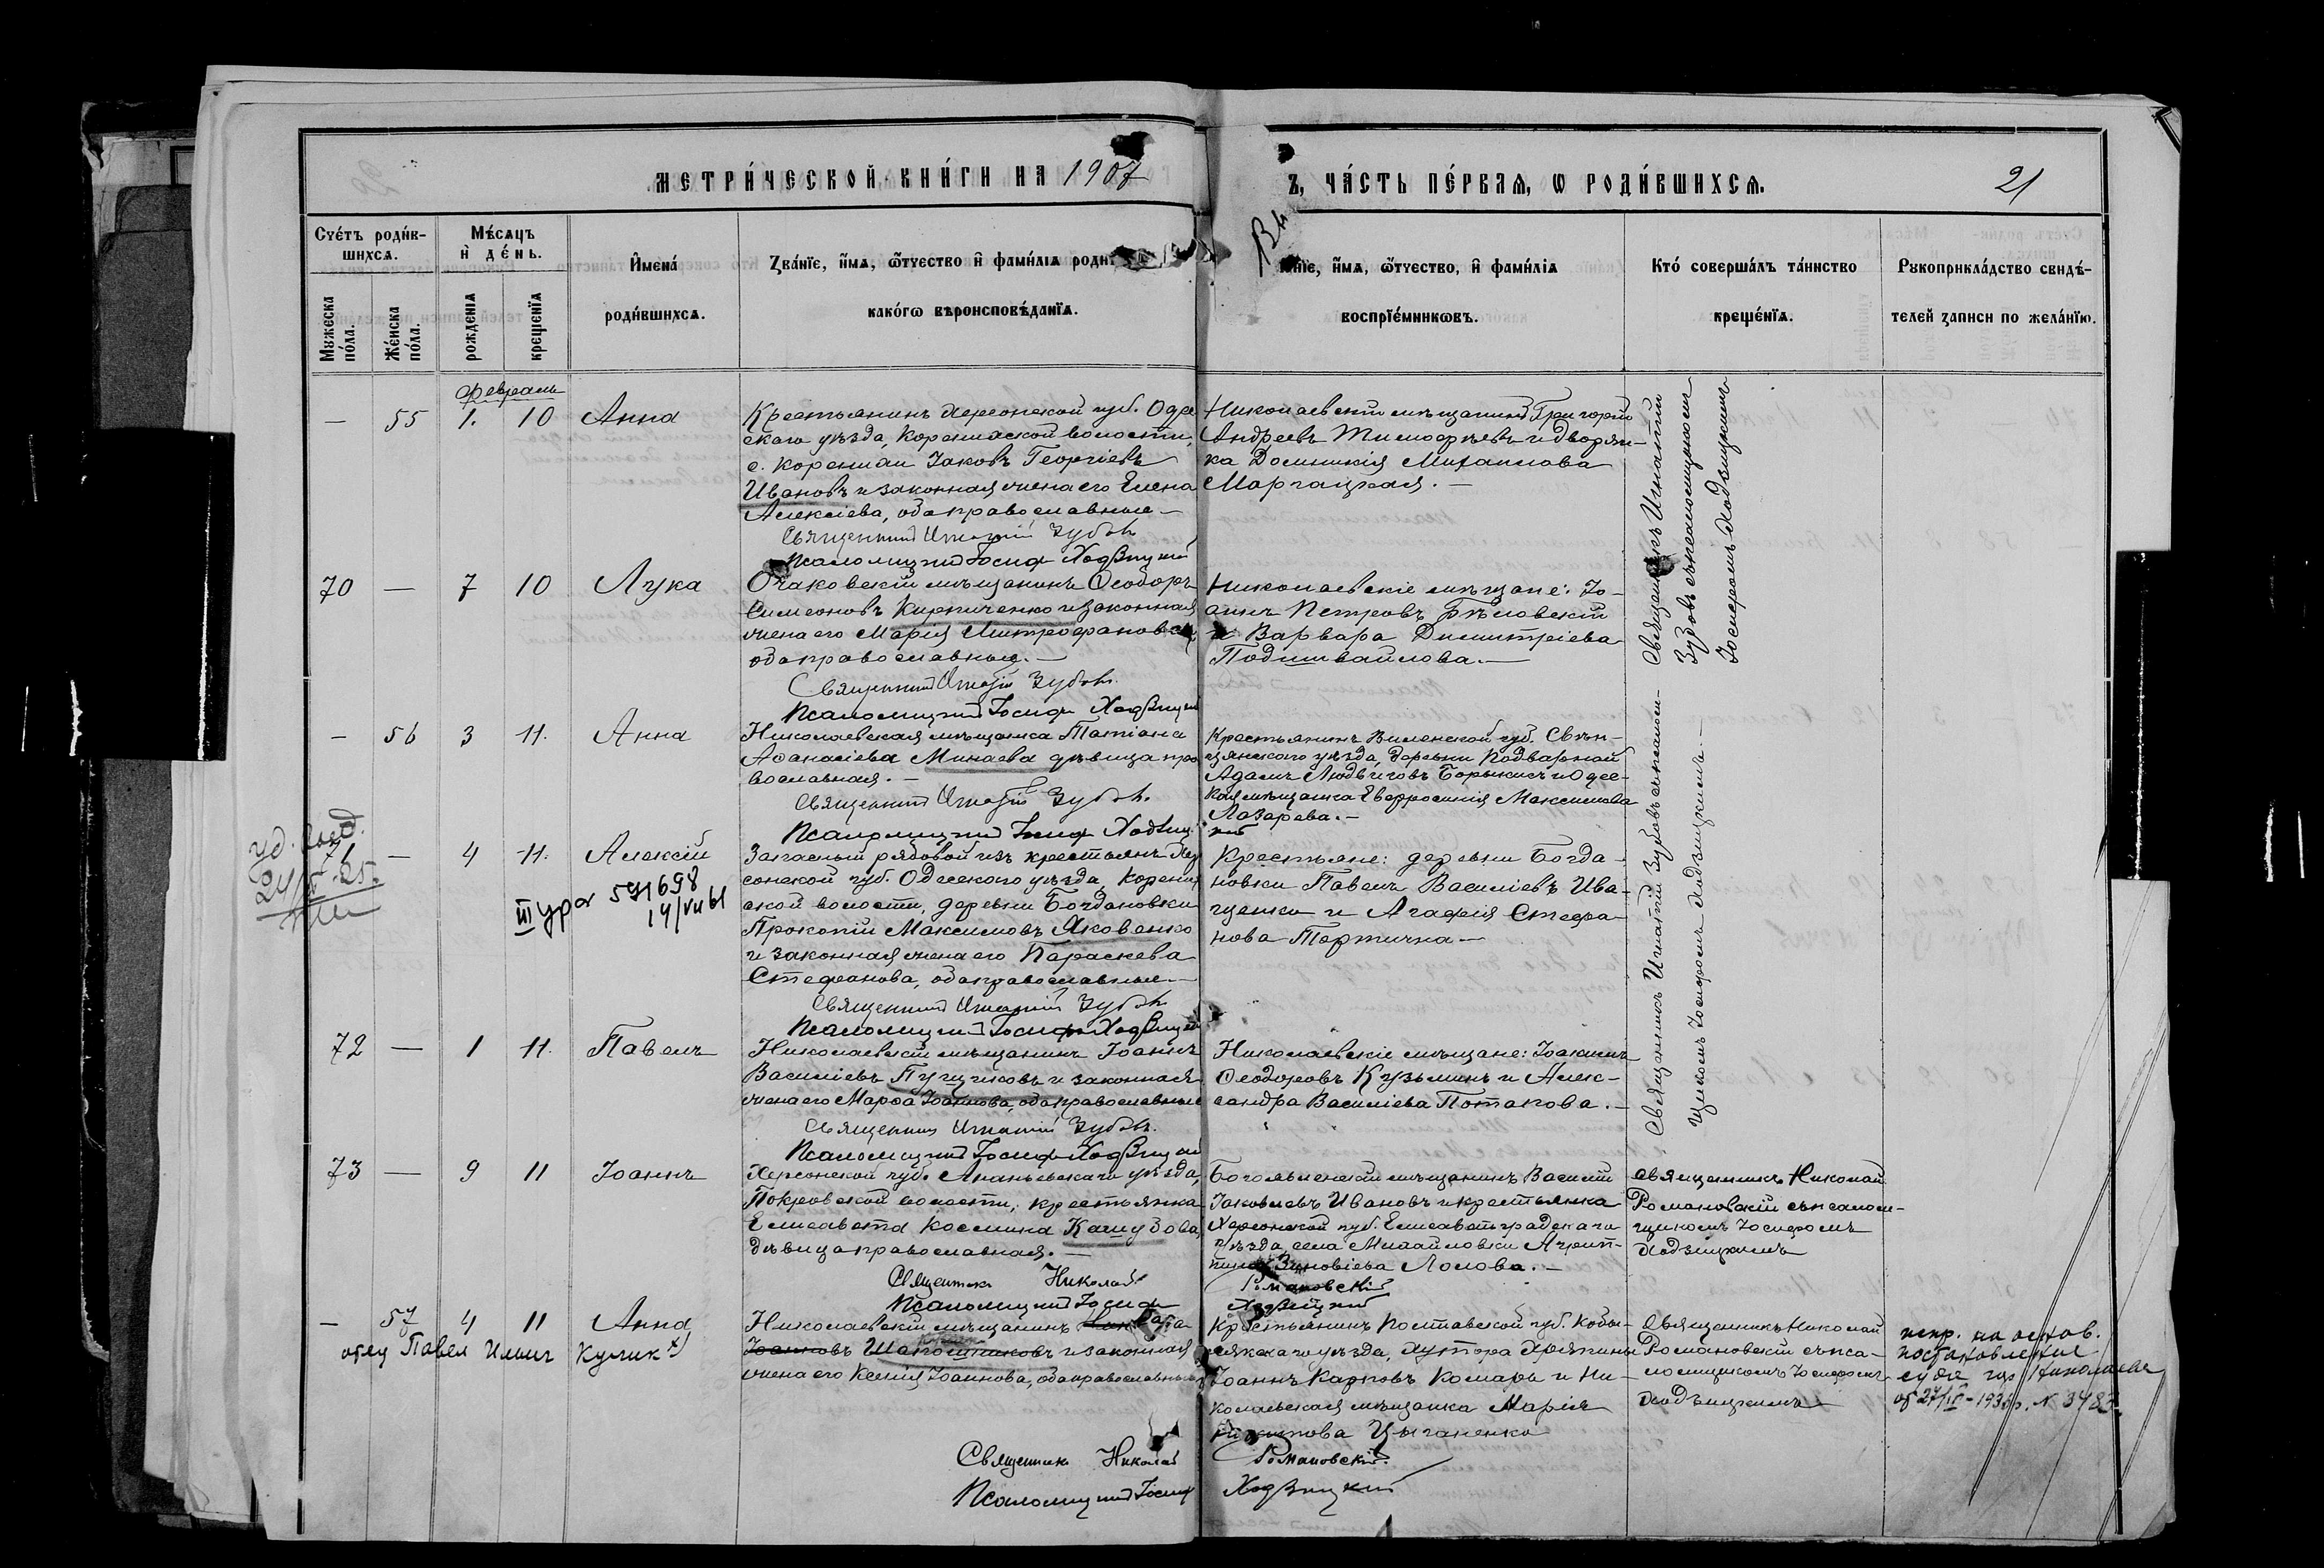 МЕТРИ́ЧЕСКОЙ КНИ́ГИ НА 1907
Ъ, ЧА́СТЬ ПЕ́РВАЯ, Ѡ РОДИ́ВШИХСЯ.
21
Сче́тъ роди́в-
шихся.
Мѣ́сяцъ
и҆ де́нь.
И҆мена́
роди́вшихся.
Зва́нїе, и҆́мя, ѻ҆́тчество и҆ фами́лїя роди
како́гѡ вѣроисповѣ́данїя.
нїе, и҆́мя, ѻ҆́тчество, и҆ фами́лїя
воспрїе́мникѡвъ.
Кто́ соверша́лъ та́инство
креще́нїя.
Рꙋкоприкла́дство свидѣ́-
телей записи по жела́нїю.
Мꙋжеска
по́ла.
Же́нска
по́ла.
рожденїя
крещенїя
Февраль
— 55 1. 10 Анна
Крестьянинъ Херсонской губ. Одес
скаго уѣзда, Коренихской волости,
с. Коренихи Іаковъ Георгіевъ
Ивановъ и законная жена его Елена
Алексіева, оба православные —
Священникъ Игнатій Зубовъ
Псаломщикъ Іосифъ Ходзицкій
Николаевскій мѣщанинъ Григорій
Андреевъ Тимофѣевъ и дворян-
ка Домникія Михаилова
Маргацкая. —
Священникъ Игнатій
Зубовъ съ псаломщикомъ
Іосифомъ Ходзицкимъ
70 — 7 10 Лука
Очаковскій мѣщанинъ Ѳеодоръ
Симеоновъ Кирпиченко и законная
жена его Марія Митрофанова,
оба православные. —
Священникъ Игнатій Зубовъ.
Псаломщикъ Іосифъ Ходзицкій
Николаевскіе мѣщане: Іо-
аннъ Петровъ Бѣловскій
и Варвара Димитріева
Подшивайлова. —
— 56 3 11. Анна
Николаевская мѣщанка Татіана
Аѳанасіева Минаева дѣвица пра
вославная. —
Священникъ Игнатій Зубовъ.
Псаломщикъ Іосифъ Ходзиц
кій
Крестьянинъ Виленской губ. Свѣн-
цянскаго уѣзда, деревни Подварной
Адамъ Людвиговъ Борыкисъ и Одес-
кая мѣщанка Евфросинія Максимова
Лазарева. —
71 — 4 11. Алексій
III ур № 591698
14/VII 61
Запасный рядовой изъ крестьянъ Хер
сонской губ. Одесскаго уѣзда, Корених
ской волости, деревни Богдановки
Прокопій Максимовъ Яковенко
и законная жена его Параскева
Стефанова, оба православные —
Священникъ Игнатій Зубовъ
Псаломщикъ Іосифъ Ходзицкій
Крестьяне: деревни Богда-
новки Павелъ Василіевъ Ива-
щенко и Агафія Стефа-
нова Тертична —
Священникъ Игнатій Зубовъ съ псалом-
щикомъ Іосифомъ Ходзицкимъ. —
72 — 1 11. Павелъ
Николаевскій мѣщанинъ Іоаннъ
Василіевъ Пущиковъ и законная
жена его Марѳа Іоаннова, оба православные
Священникъ Игнатій Зубовъ.
Псаломщикъ Іосифъ Ходзицкій
Николаевскіе мѣщане: Іоакимъ
Ѳеодоровъ Кузьминъ и Алек-
сандра Василіева Потапова. —
73 — 9 11 Іоаннъ
Херсонской губ. Ананьевскаго уѣзда,
Покровской волости, крестьянка
Елисавета Космина Кашубова,
дѣвица православная. —
Священникъ Николай Романовскій
Псаломщикъ Іосифъ Ходзицкій
мѣщанинъ Василій
Іаковлевъ Ивановъ и крестьянка
Херсонской губ. Елисаветградскаго
уѣзда, села Михайловки Агрип-
пина Зиновіева Лолова. —
Священникъ Николай
Романовскій съ псалом-
щикомъ Іосифомъ
Ходзицкимъ
— 57 4 11 Анна
отец Павел Ильич Кулик х)
Николаевскій мѣщанинъ
Іоанновъ Шапошниковъ и законная
жена его Ксенія Іоаннова, оба православные
Священникъ Николай Романовскій
Псаломщикъ Іосифъ Ходзицкій
Крестьянинъ Полтавской губ. Кобы-
лякскаго уѣзда, хутора
Іоаннъ Карповъ Комарь и Ни-
колаевская мѣщанка Марія
Никитова Цыганенко
Священникъ Николай
Романовскій съ пса-
ломщикомъ Іосифомъ
Ходзицкимъ
испр. на основ.
постановления
суда гор Николаева
от 27/IV-193 г. N 3483.